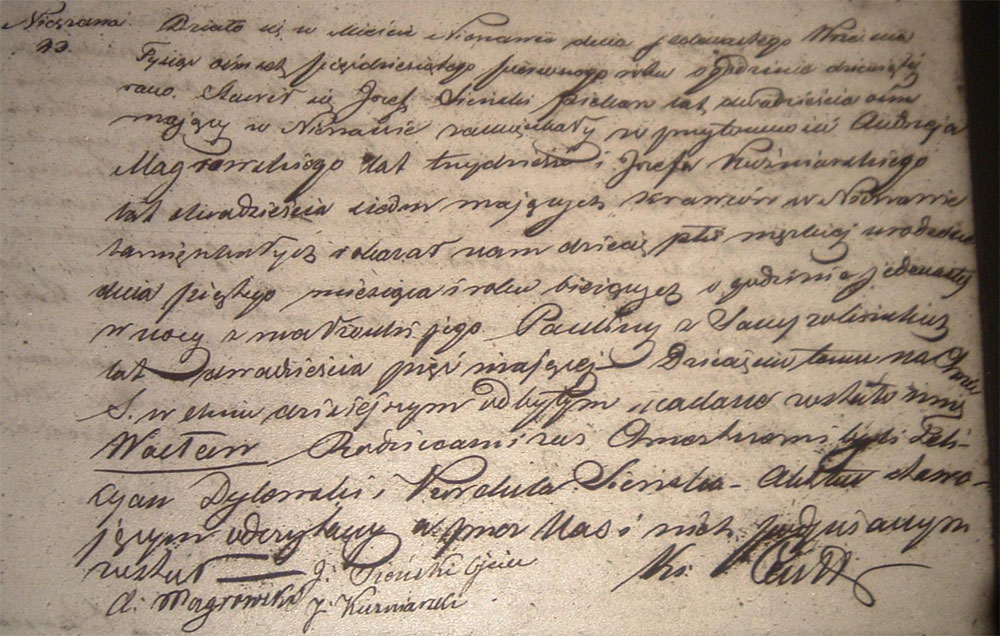 Nieszawa.
43.
Działo się w Mieście Nieszawie dnia jedenastego Września
Tysiąc ośmset pięćdziesiątego pierwszego roku o godzinie dziesiątej
rano. Stawił się Józef Sieński piekarz lat dwadzieścia ośm
mający w Nieszawie zamięszkały w przytomności Andrzeja
Magrowskiego lat trzydzieści i Józefa Kuźniarskiego
lat dwadzieścia siedm mających w Nieszawie
zamięszkałych i okazał nam dziecię płci męzkiej urodzone
dnia piątego miesiąca i roku bieżących o godzinie jedenastej
w nocy z małżonki jego Pauliny z
lat dwadzieścia pięć mającej – Dziecięciu temu na Chrzcie
S. w dniu dzisiejszym odbytym nadane zostało imię
Wacław Rodzicami zaś Chrzestnemi byli Feli-
cyan Dylewski i Kordula Sieńska – Akt ten stawa-
jącym odczytany a przez Nas i nich podpisanym
został
J. Sieński ojciec
A. Magrowski J. Kuźniarski
Ks.